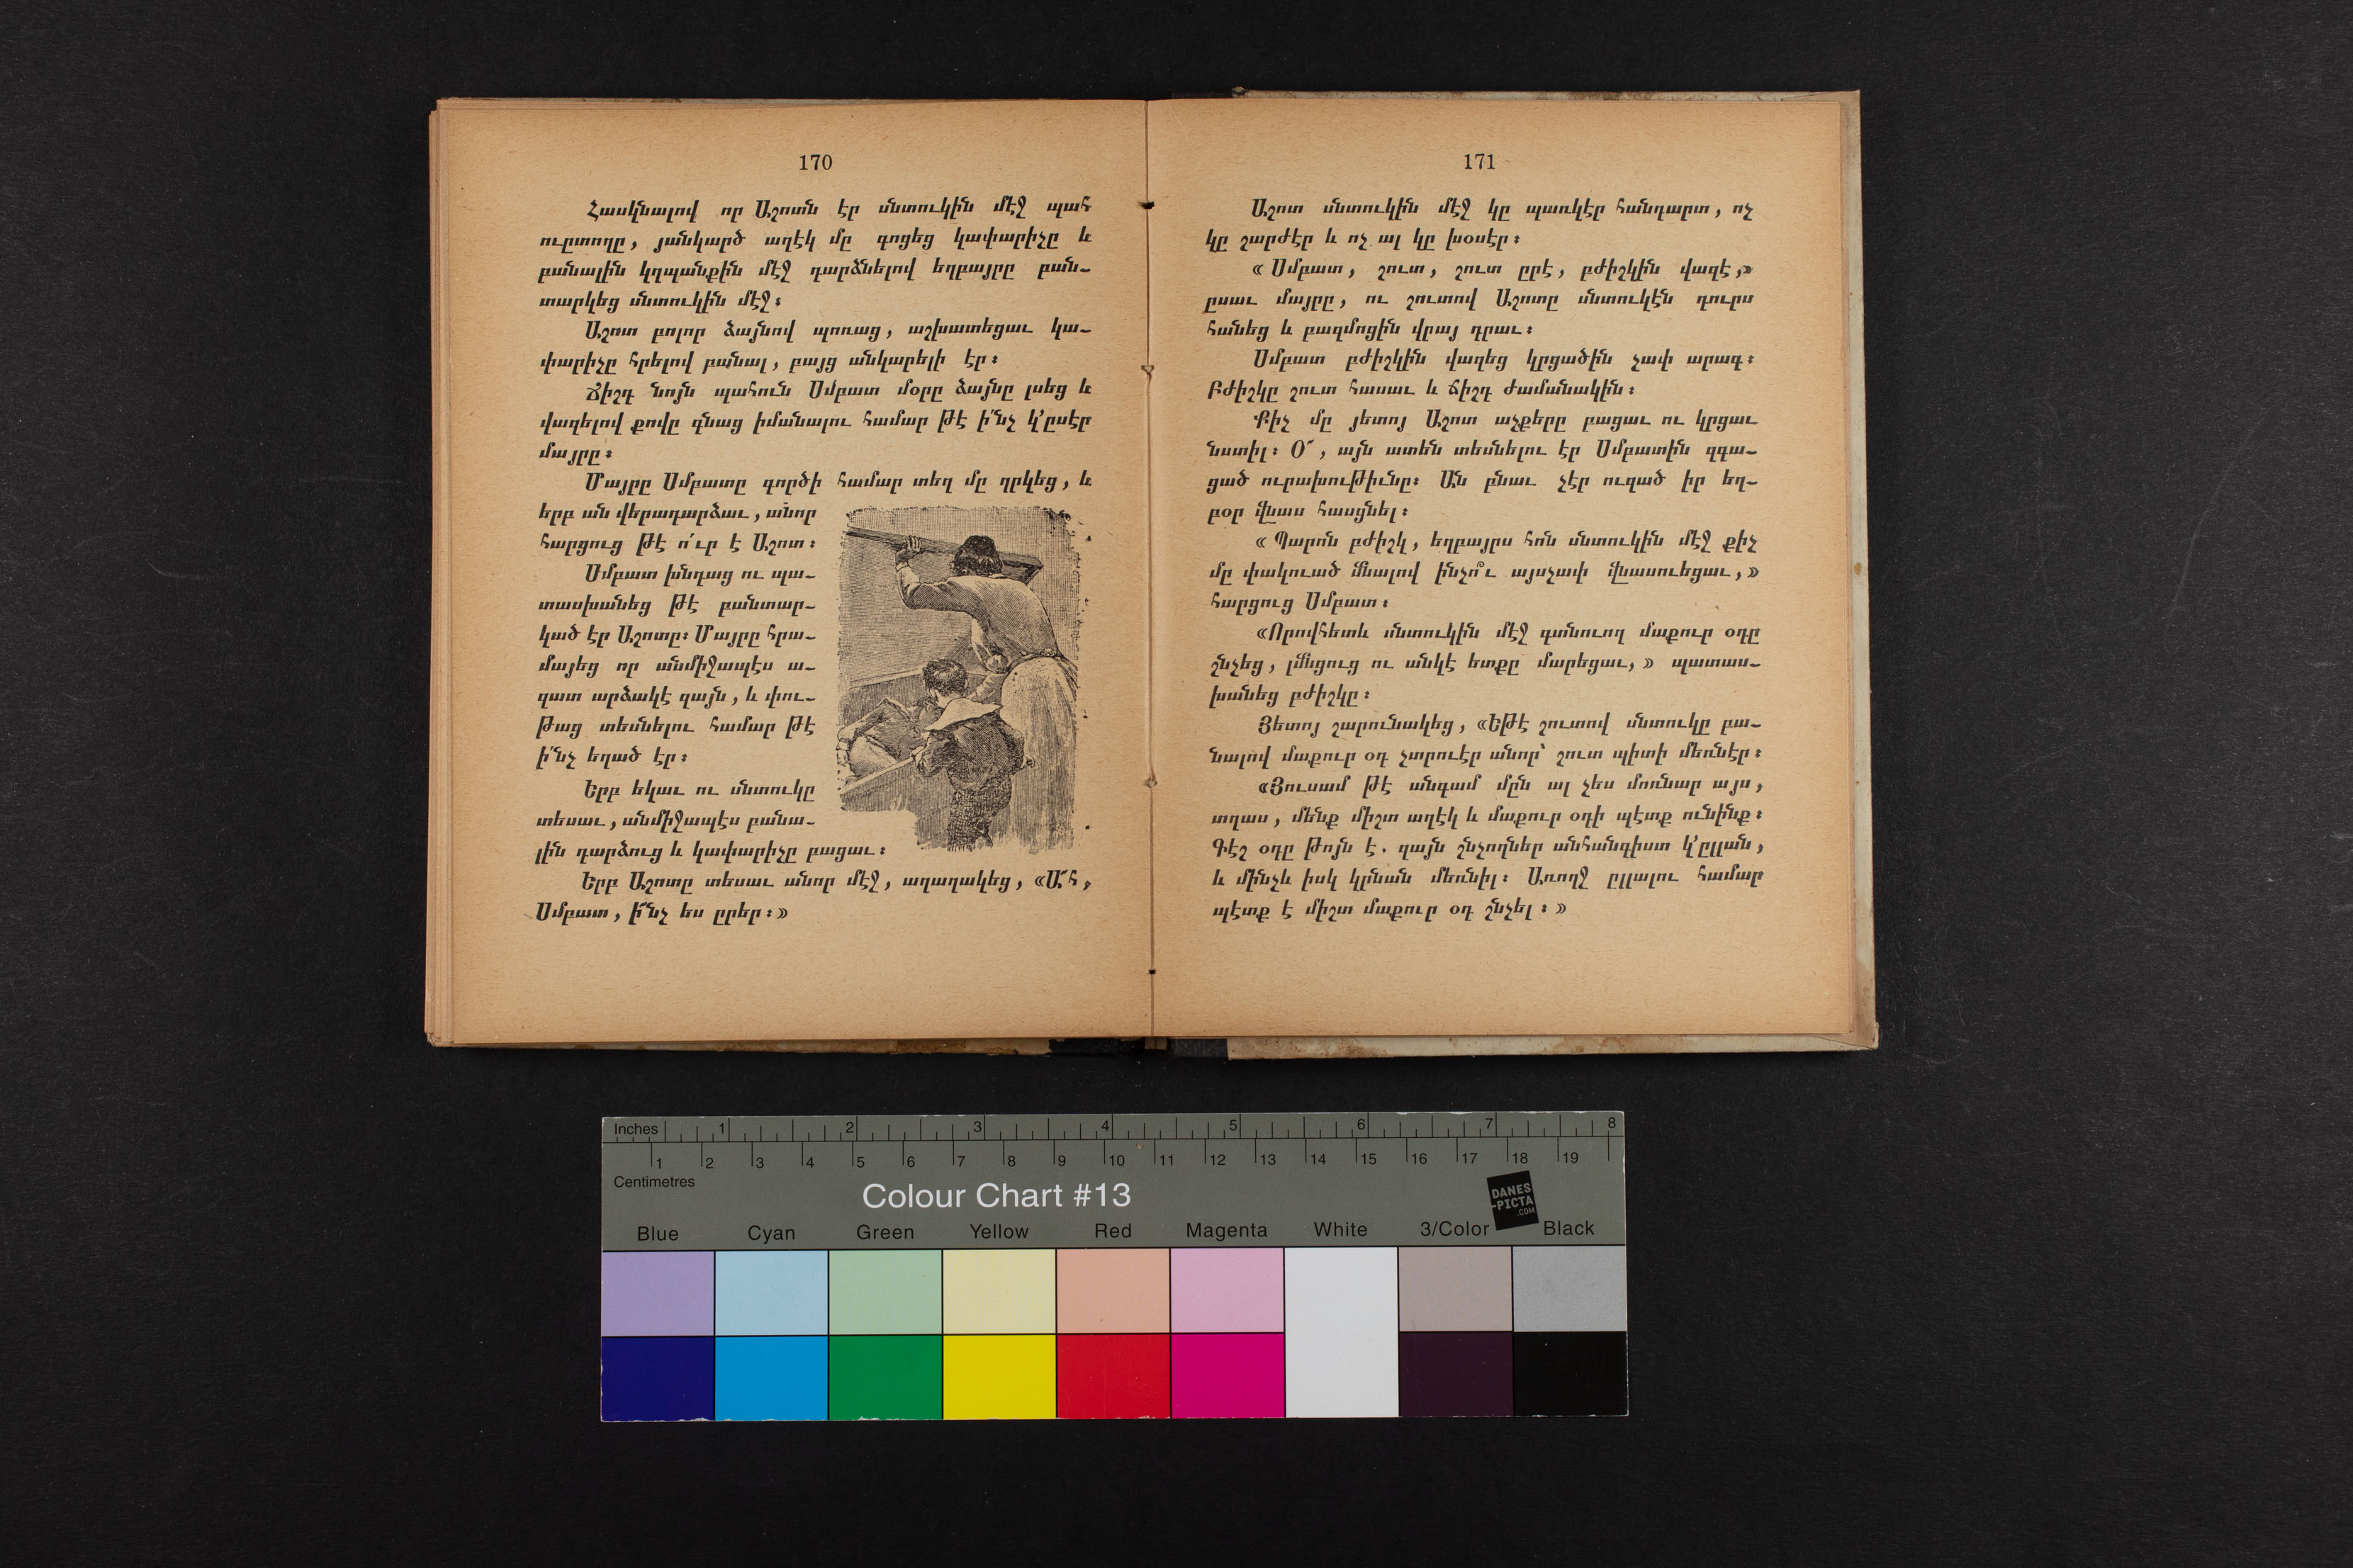 170
Հասկնալով որ Աշոտն էր սնտուկին մէջ պահ
ուըտողը, յանկարծ աղէկ մը գոցեց կափարիչը և
բանալին կղպանքին մէջ դարձնելով եղբայրը բան-
տարկեց սնտուկին մէջ։
Աշոտ բոլոր ձայնով պոռաց, աշխատեցաւ կա-
փարիչը հրելով բանալ, բայց անկարելի էր։
Ճիշդ նոյն պահուն Սմբատ մօրը ձայնը լսեց և
վազելով քովը գնաց իմանալու համար թէ ի՛նչ կ՚ըսէր
մայրը։
Մայրը Սմբատը գործի համար տեղ մը ղրկեց, և
երբ ան վերադարձաւ, անոր
հարցուց թէ ո՛ւր է Աշոտ։
Սմբատ խնդաց ու պա-
տասխանեց թէ բանտար-
կած էր Աշոտը։ Մայրը հրա-
մայեց որ անմիջապէս ա-
զատ արձակէ զայն, և փու-
թաց տեսնելու համար թէ
ի՛նչ եղած էր։
Երբ եկաւ ու սնտուկը
տեսաւ, անմիջապէս բանա-
լին դարձուց և կափարիչը բացաւ։
Երբ Աշոտը տեսաւ անոր մէջ, աղաղակեց, «Ա՜հ,
Սմբատ, ի՞նչ ես ըրեր։»
171
Աշոտ սնտուկին մէջ կը պառկէր հանդարտ, ոչ
կը շարժէր և ոչ ալ կը խօսէր։
«Սմբատ, շուտ, շուտ ըրէ, բժիշկին վազէ,»
ըսաւ մայրը, ու շուտով Աշոտը սնտուկէն դուրս
հանեց և բազմոցին վրայ դրաւ։
Սմբատ բժիշկին վազեց կրցածին չափ արագ։
Բժիշկը շուտ հասաւ և ճիշդ ժամանակին։
Քիչ մը յետոյ Աշոտ աչքերը բացաւ ու կրցաւ
նստիլ։ Օ՜, այն ատեն տեսնելու էր Սմբատին զգա-
ցած ուրախութիւնը։ Ան բնաւ չէր ուզած իր եղ-
բօր վնաս հասցնել։
«Պարոն բժիշկ, եղբայրս հոն սնտուկին մէջ քիչ
մը փակուած մնալով ինչո՞ւ այսչափ վնասուեցաւ,»
հարցուց Սմբատ։
«Որովհետև սնտուկին մէջ գտնուող մաքուր օդը
շնչեց, լմնցուց ու անկէ ետքը մարեցաւ,» պատաս-
խանեց բժիշկը։
Յետոյ շարունակեց, «Եթէ շուտով սնտուկը բա-
նալով մաքուր օդ չտրուէր անոր՝ շուտ պիտի մեռնէր։
«Յուսամ թէ անգամ մըն ալ չես մոռնար այս,
տղաս, մենք միշտ աղէկ և մաքուր օդի պէտք ունինք։
Գէշ օդը թոյն է. զայն շնչողներ անհանգիստ կ՚ըլլան,
և մինչև իսկ կրնան մեռնիլ։ Առողջ ըլլալու համար
պէտք է միշտ մաքուր օդ շնչել։»
Inches 1 2 3 4 5 6 7 8
1 2 3 4 5 6 7 8 9 10 11 12 13 14 15 16 17 18 19
Centimetres
Colour Chart #13
DANES
-PICTA
.COM
Blue Cyan Green Yellow Red Magenta White 3/Color Black